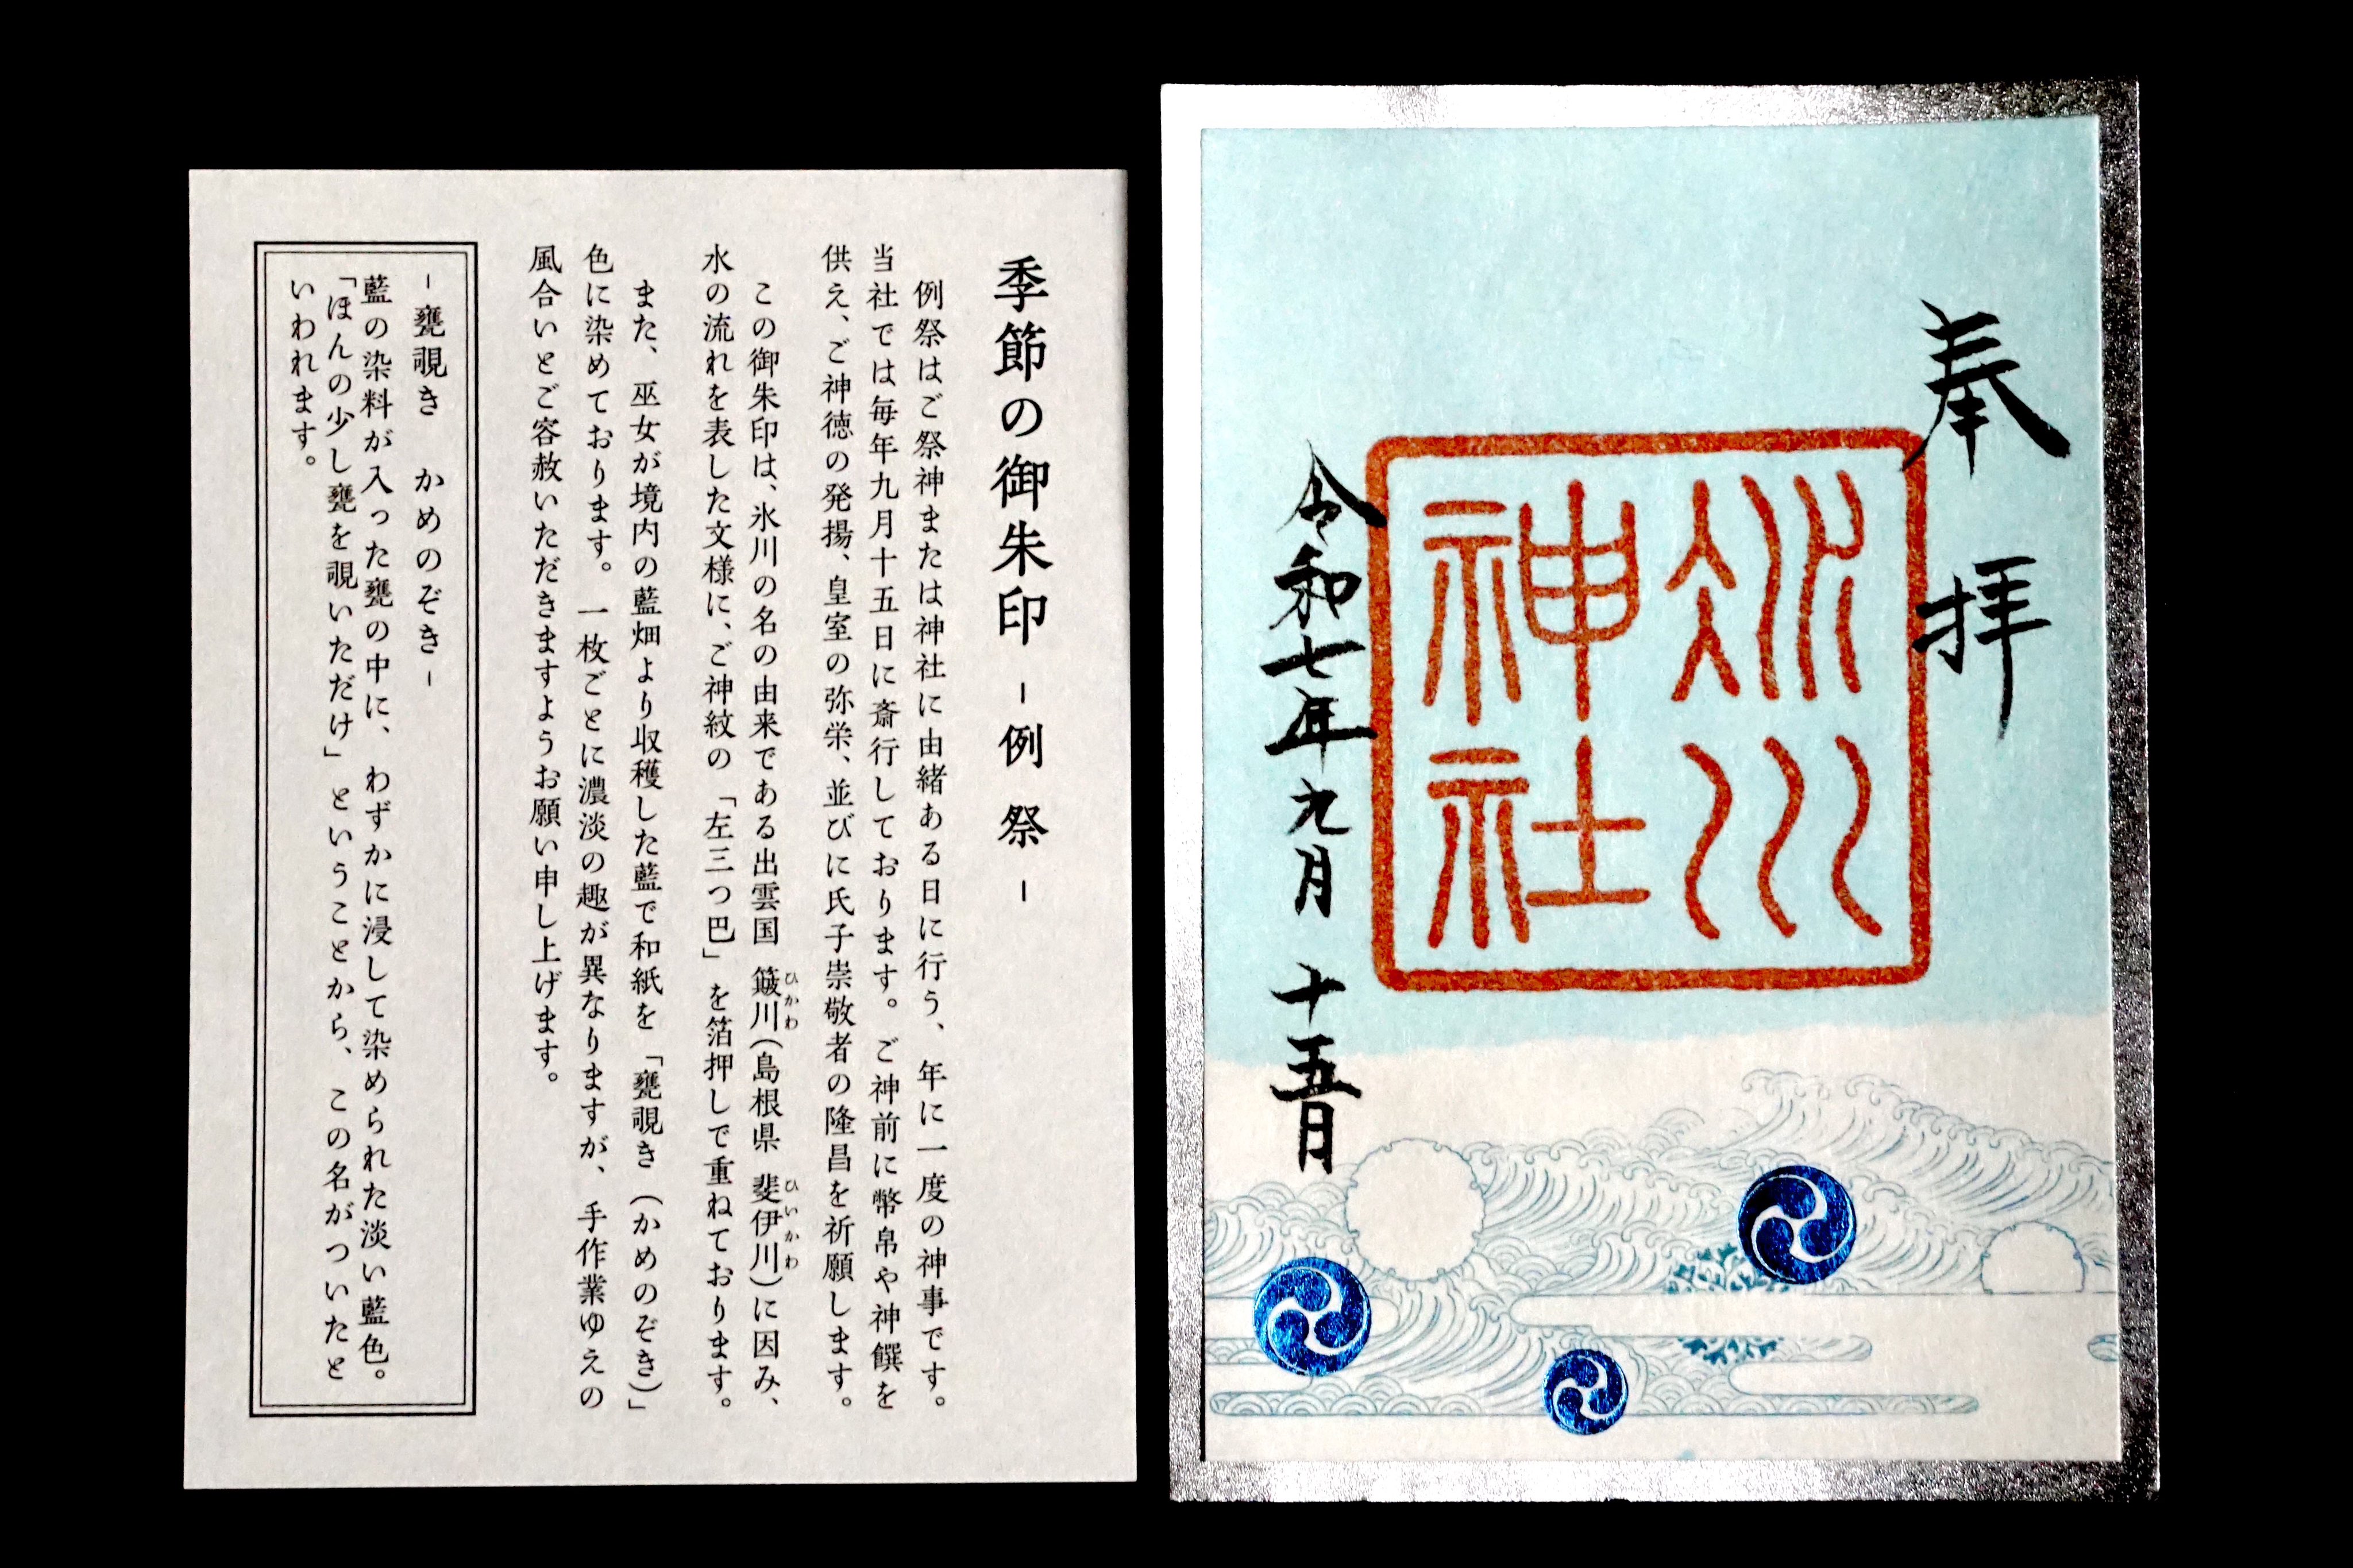 奉拝
氷川
神社
令和七年九月十五日
季節の御朱印 -例祭-
例祭はご祭神または神社に由緒ある日に行う、年に一度の神事です。
当社では毎年九月十五日に斎行しております。ご神前に幣帛や神饌を
供え、ご神徳の発揚、皇室の弥栄、並びに氏子崇敬者の隆昌を祈願します。
この御朱印は、氷川の名の由来である出雲国 簸川(島根県 斐伊川)に因み、
ひかわ
ひいかわ
水の流れを表した文様に、ご神紋の「左三つ巴」を箔押しで重ねております。
また、巫女が境内の藍畑より収穫した藍で和紙を「甕覗き(かめのぞき)」
色に染めております。一枚ごとに濃淡の趣が異なりますが、手作業ゆえの
風合いとご容赦いただきますようお願い申し上げます。
-甕覗き かめのぞき-
藍の染料が入った甕の中に、わずかに浸して染められた淡い藍色。
「ほんの少し甕を覗いただけ」ということから、この名がついたと
いわれます。